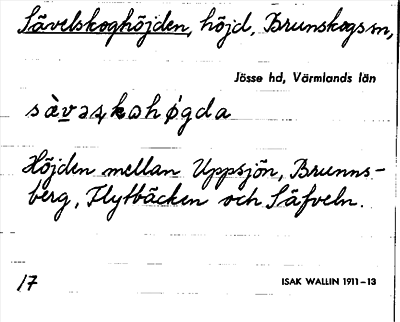 Sävelskoghöjden, höjd, Brunskogs sn,
Jösse hd, Värmlands län
Höjden mellan Uppsjön, Brunns-
berg, Flytbäcken och Säfveln.
17
ISAK WALLIN 1911-13